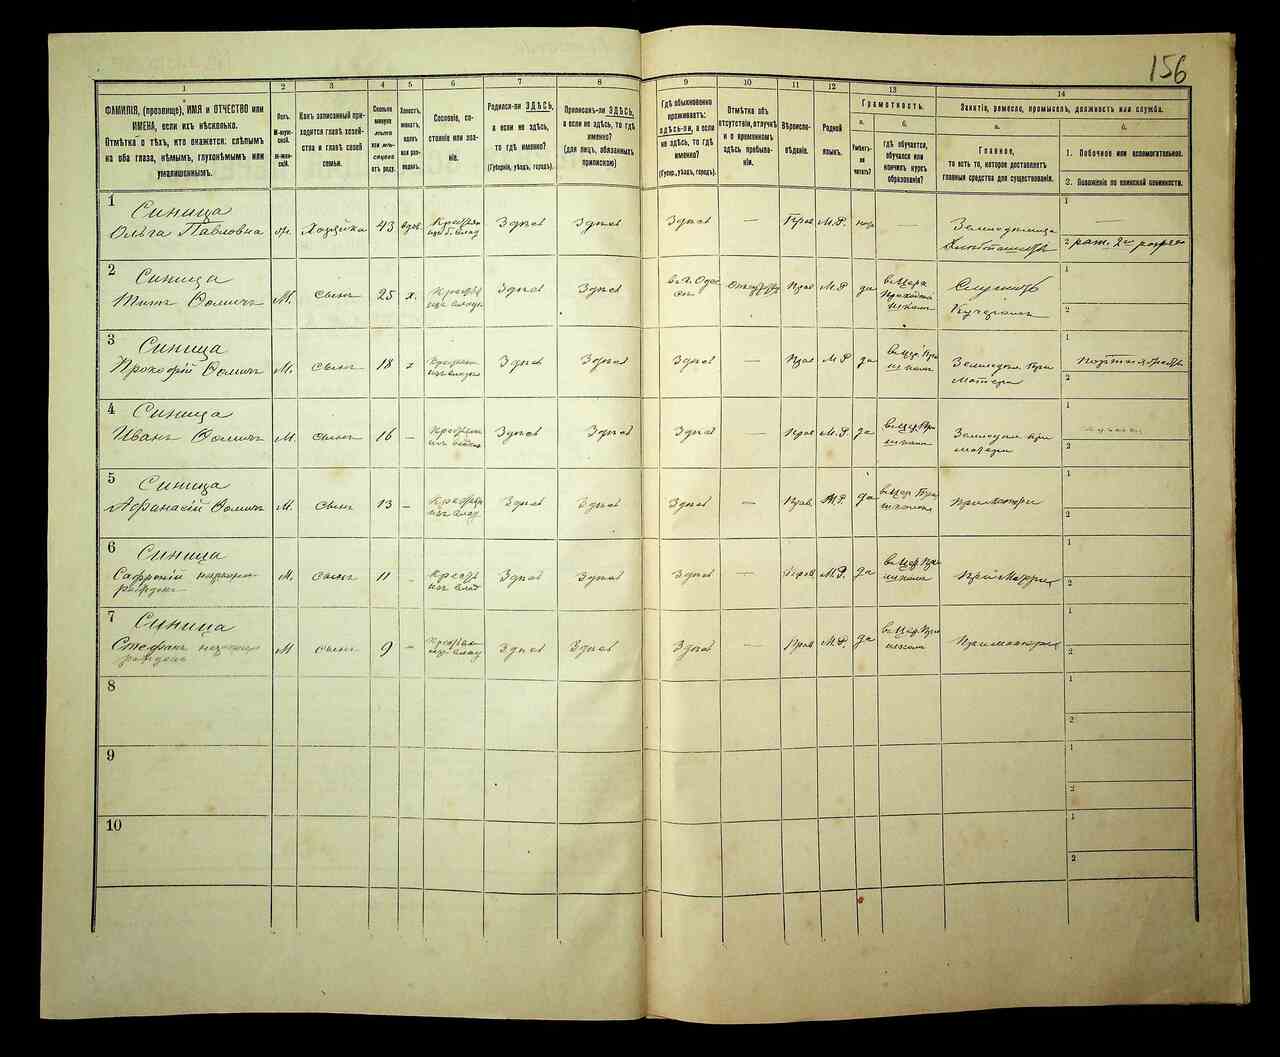 156
1
2
3
4
5
6
7
8
9
10
11
12
13
14
ФАМИЛІЯ, (прозвище), ИМЯ и ОТЧЕСТВО или
ИМЕНА, если ихъ нѣсколько.
Отмѣтка о тѣхъ, кто окажется: слѣпымъ
на оба глаза, нѣмымъ, глухонѣмымъ или
умалишеннымъ.
Полъ.
М-мужской.
Ж-женскій.
Какъ записанный при-
ходится главѣ хозяй-
ства и главѣ своей
семьи.
Сколько
минуло
лѣтъ
или мѣ-
сяцевъ
отъ роду.
Холостъ,
женатъ,
вдовъ
или раз-
веденъ.
Сословіе, со-
стояніе или зва-
ніе.
Родился-ли ЗДѢСЬ,
а если не здѣсь,
то гдѣ именно?
(Губернія, уѣздъ, городъ).
Приписанъ-ли ЗДѢСЬ,
а если не здѣсь, то гдѣ
именно?
(для лицъ, обязанныхъ
припискою)
Гдѣ обыкновенно
проживаетъ:
ЗДѢСЬ-ли, а если
не здѣсь, то гдѣ
именно?
(Губер., уѣздъ, городъ).
Отмѣтка объ
отсутствіи, отлучкѣ
и о временномъ
здѣсь пребыва-
ніи.
Вѣроиспо-
вѣданіе.
Родной
языкъ.
Грамотность.
а.
Умѣетъ-
ли
читать?
б.
гдѣ обучается,
обучался или
кончилъ курсъ
образованія?
Занятіе, ремесло, промыселъ, должность или служба.
а.
Главное,
то есть то, которое доставляетъ
главныя средства для существованія.
б.
1. Побочное или вспомогательное.
2. Положеніе по воинской повинности.
1 Синица
Ольга Павловна ж. Хозяйка 43 вдов Здѣсь Здѣсь Здѣсь — Прав М.Р. —
1 —
2
2 Синица
Титъ Ѳомичъ М. сынъ 25 х. Здѣсь Здѣсь Прав М.Р да
Служитъ
Кучеромъ
1
2
3 Синица
Прокофій Ѳомичъ М. сынъ 18 х Здѣсь Здѣсь Здѣсь — Прав М.Р да
Земледѣл. при
матери
1
2
4 Синица
Иванъ Ѳомичъ М. сынъ 16 — Здѣсь Здѣсь Здѣсь — Прав М.Р. да
Земледѣл при
матери
1
2
5 Синица
Афанасій Ѳомичъ М. сынъ 13 — Здѣсь Здѣсь Здѣсь — Прав М.Р да при матери
1
2
6 Синица
М. сынъ 11 — Здѣсь Здѣсь Здѣсь — Прав М.Р. да при матери
1
2
7 Синица
Стефанъ М сынъ 9 — Здѣсь Здѣсь Здѣсь — Прав М.Р. да при матери
1
2
8
1
2
9
1
2
10
1
2